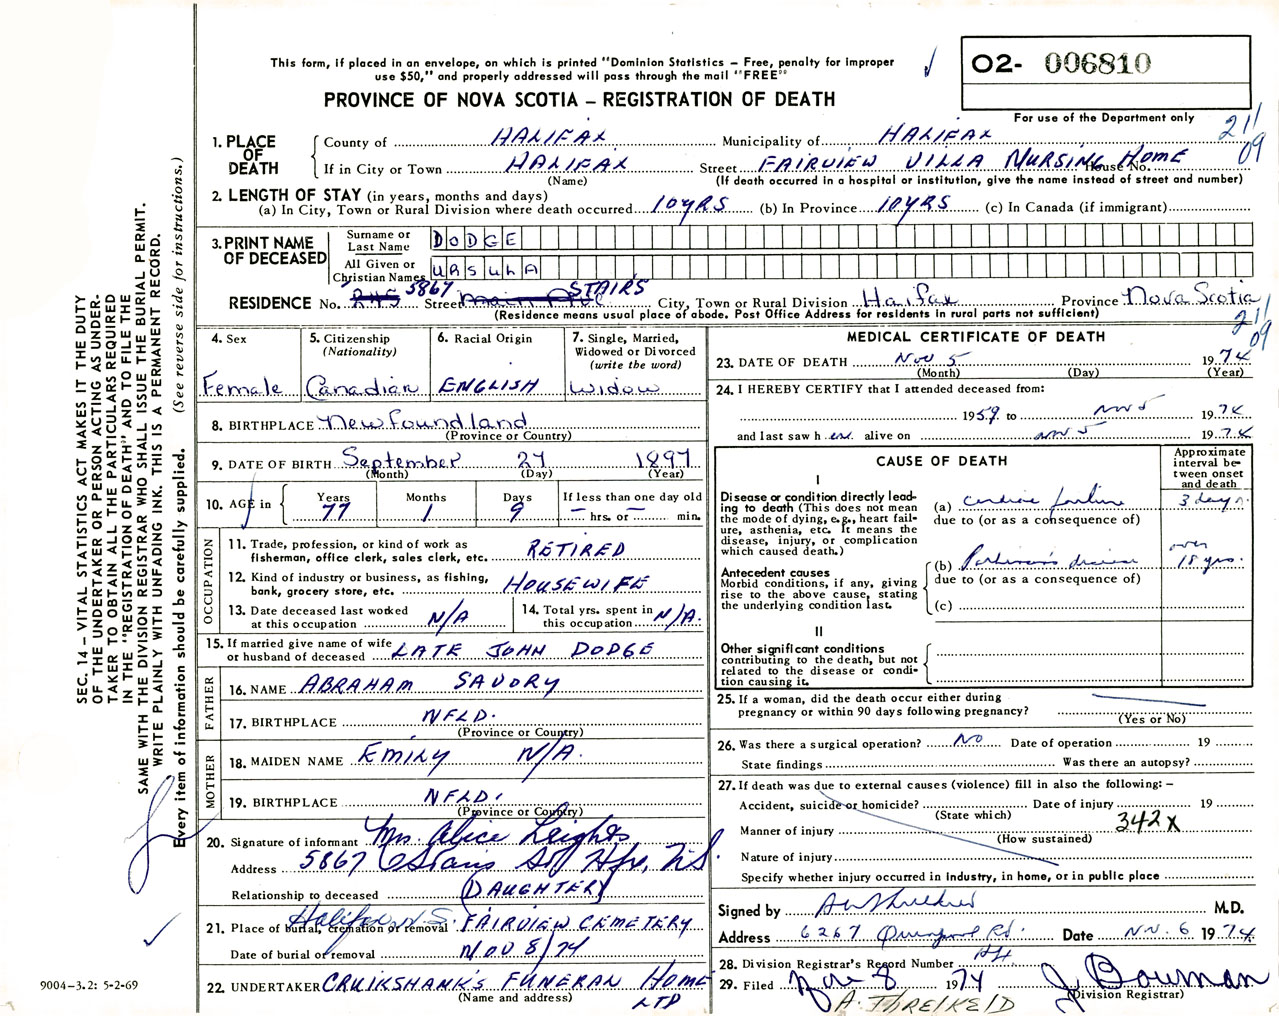 This form, if placed in an envelope, on which is printed "Dominion Statistics – Free, penalty for improper
use $50," and properly addressed will pass through the mail "FREE"
O2- 006810
PROVINCE OF NOVA SCOTIA – REGISTRATION OF DEATH
For use of the Department only
211
09
1. PLACE OF DEATH
County of HALIFAX Municipality of HALIFAX
If in City or Town HALIFAX Street FAIRVIEW VILLA NURSING HOME House No.
(Name) (If death occurred in a hospital or institution, give the name instead of street and number)
2. LENGTH OF STAY (in years, months and days)
(a) In City, Town or Rural Division where death occurred 10 YRS (b) In Province 10 YRS (c) In Canada (if immigrant)
3. PRINT NAME OF DECEASED
Surname or Last Name DODGE
All Given or Christian Names URSULA
RESIDENCE No. 5867 Street STAIRS City, Town or Rural Division Haifax Province Nova Scotia
(Residence means usual place of abode. Post Office Address for residents in rural parts not sufficient)
211
09
4. Sex Female
5. Citizenship (Nationality) Canadian
6. Racial Origin ENGLISH
7. Single, Married, Widowed or Divorced (write the word) Widow
8. BIRTHPLACE Newfoundland
(Province or Country)
9. DATE OF BIRTH September 27 1897
(Month) (Day) (Year)
10. AGE in Years 77 Months 1 Days 9 If less than one day old – hrs. or – min.
OCCUPATION
11. Trade, profession, or kind of work as fisherman, office clerk, sales clerk, etc. RETIRED
12. Kind of industry or business, as fishing, bank, grocery store, etc. HOUSEWIFE
13. Date deceased last worked at this occupation N/A
14. Total yrs. spent in this occupation N/A.
15. If married give name of wife or husband of deceased LATE JOHN DODGE
FATHER
16. NAME ABRAHAM SAVORY
17. BIRTHPLACE NFLD.
(Province or Country)
MOTHER
18. MAIDEN NAME EMILY N/A.
19. BIRTHPLACE NFLD.
(Province or Country)
20. Signature of informant Mrs. Alice Leights
Address 5867 Stairs St Hfx, N.S.
Relationship to deceased (DAUGHTER)
21. Place of burial, cremation or removal Halifax N.S. FAIRVIEW CEMETERY
Date of burial or removal NOV 8/74
22. UNDERTAKER CRUIKSHANK'S FUNERAL HOME LTD
(Name and address)
MEDICAL CERTIFICATE OF DEATH
23. DATE OF DEATH Nov 5 1974
(Month) (Day) (Year)
24. I HEREBY CERTIFY that I attended deceased from:
1959 to Nov 5 1974
and last saw her alive on Nov 5 1974
CAUSE OF DEATH
Approximate interval between onset and death
I
Disease or condition directly leading to death (This does not mean the mode of dying, e.g., heart failure, asthenia, etc. It means the disease, injury, or complication which caused death.)
(a) cardiac failure 3 days.
due to (or as a consequence of)
Antecedent causes
Morbid conditions, if any, giving rise to the above cause, stating the underlying condition last.
(b) Parkinson's disease over 15 yrs.
due to (or as a consequence of)
(c)
II
Other significant conditions contributing to the death, but not related to the disease or condition causing it.
25. If a woman, did the death occur either during pregnancy or within 90 days following pregnancy?
(Yes or No)
26. Was there a surgical operation? No Date of operation 19
State findings Was there an autopsy?
27. If death was due to external causes (violence) fill in also the following: –
Accident, suicide or homicide? Date of injury 19
(State which)
Manner of injury 342X
(How sustained)
Nature of injury
Specify whether injury occurred in industry, in home, or in public place
Signed by M.D.
Address 6267 Rd. Hfx Date Nov. 6 1974
28. Division Registrar's Record Number
29. Filed Nov 8 1974 J. Bowman
(Division Registrar)
A. THRELKELD
SEC. 14 – VITAL STATISTICS ACT MAKES IT THE DUTY
OF THE UNDERTAKER OR PERSON ACTING AS UNDER-
TAKER TO OBTAIN ALL THE PARTICULARS REQUIRED
IN THE "REGISTRATION OF DEATH" AND TO FILE THE
SAME WITH THE DIVISION REGISTRAR WHO SHALL ISSUE THE BURIAL PERMIT.
WRITE PLAINLY WITH UNFADING INK. THIS IS A PERMANENT RECORD.
Every item of information should be carefully supplied. (See reverse side for instructions.)
9004-3.2: 5-2-69